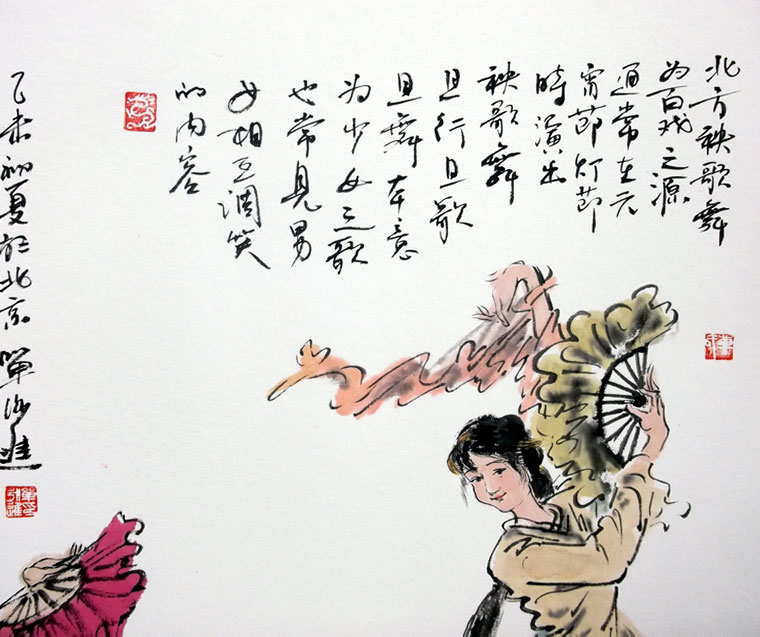 北方秧歌舞
为百戏之源
通常在元
宵節灯節
時演出
秧歌舞
且行且歌
且舞本意
为少女之歌
也常見男
女相互調笑
的内容
乙未初夏於北京